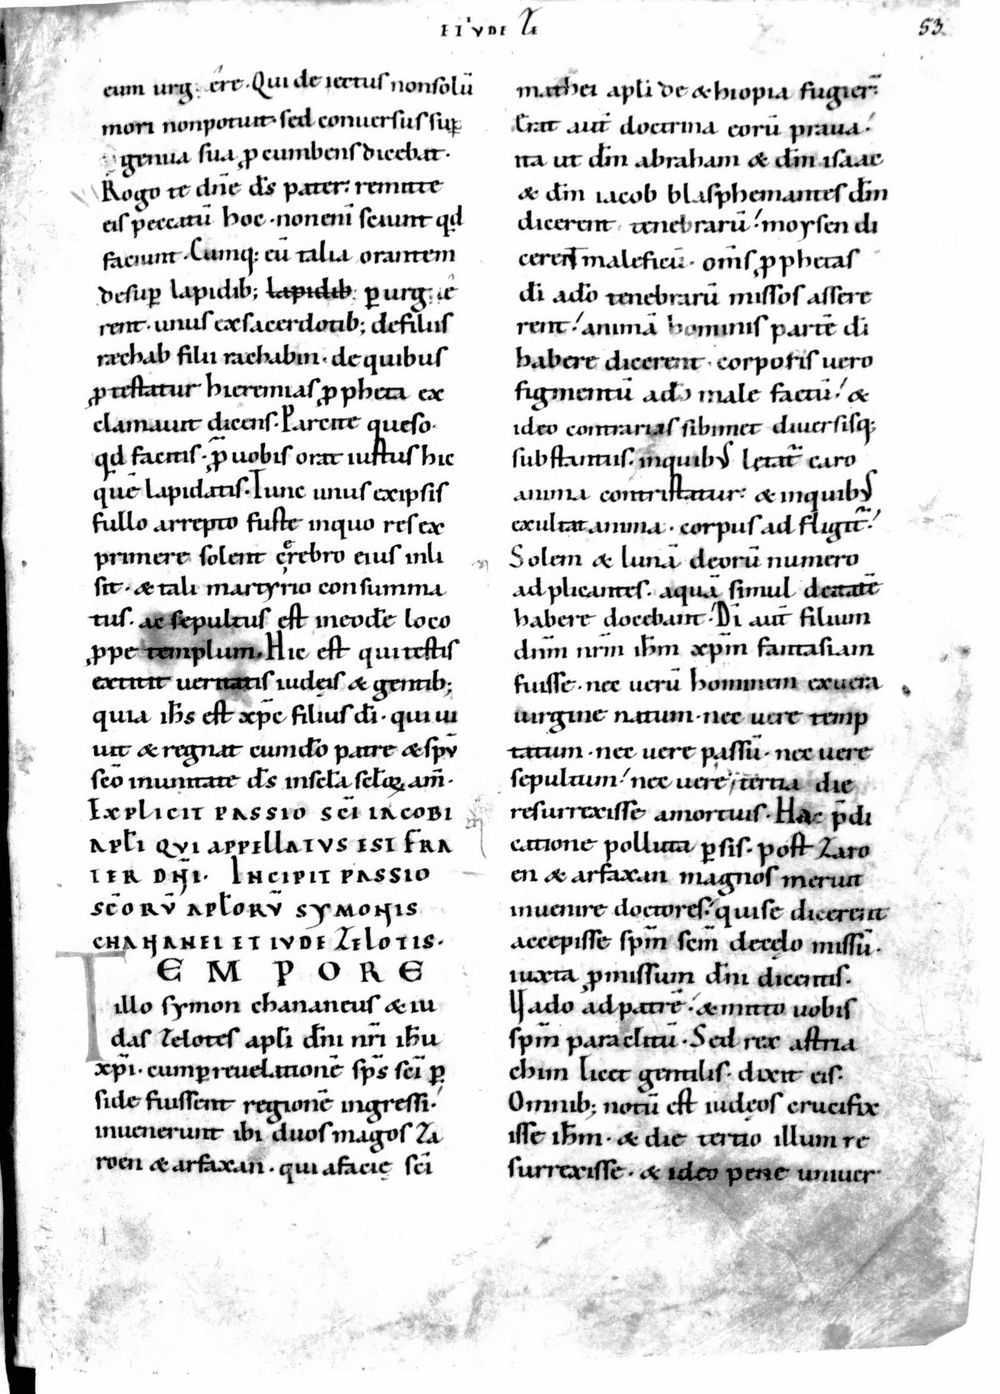 ET IVDE ZE
53
eum urg: ere. Qui deiectus nonsolū
mori nonpotuit. sed conuersus sup̄
genua sua ꝓcumbens dicebat.
Rogo te dn̄e ds̄ pater: remitte
eis peccatū hoc. nonenī sciunt qd̄
faciunt. Cumq: eū talia orantem
desup̄ lapidib; lapidib p̄urg:e
rent. unus exsacerdotib; defiliis
rechab filii rachabin. dequibus
ꝓtestatur hieremias ꝓpheta ex
clamauit dicens. Parcite queso.
qd̄ facitis. ꝓ uobis orat iustus hic
quē lapidatis. Tunc unus exipsis
fullo arrepto fuste inquo resex
primere solent cerebro eius inli
sit. & tali martyrio consumma
tus. ac sepultus est ineodē loco
ꝓpe templum. Hic est quitestis
extitit ueritatis iudęis & gentib;
quia ih̄s est xp̄c filius dī. qui ui
uit & regnat cumdō patre & sp̄u
sc̄o inunitate ds̄ insc̄la sc̄loꝝ am̄.
EXPLICIT PASSIO SC̄I IACOBI
APLI QVI APPELLATVS EST FRA
TER DN̄I. INCIPIT PASSIO
SC̄ORV̄ APLORV̄ SYMONIS
CHANANEI ET IVDE ZELOTIS.
TEMPORE
illo symon chananeus & iu
das Zelotes apli dn̄i nr̄i ih̄u
xp̄i. cump̄reuelationē sp̄s sc̄i p̄
side fuissent regionē ingressi.
inuenerunt ibi duos magos Za
roen & arfaxan. qui afacię sc̄i
mathei apli de &hiopia fugier̄:
Erat aut̄ doctrina eorū praua.
ita ut dm̄ abraham & dm̄ isaac
& dm̄ iacob blasphemantes dm̄
dicerent tenebrarū. moysen di
cerent maleficū. om̄s ꝓphetas
dī adō tenebrarū missos assere
rent. animā hominis partē dī
habere dicerent. corporis uero
figmentū adō male factū. &
ideo contrariis sibimet diuersisq;
substantiis. inquibus lętat̄ caro
anima contristatur: & inquibus
exultat anima. corpus adfligit̄.
Solem & lunā deorū numero
adplicantes. aquā simul deitatē
habere docebant. Dī aut̄ filium
dn̄m nr̄m ih̄m xp̄m fantasiam
fuisse. nec uerū hominem exuera
uirgine natum. nec uere temp
tatum. nec uere passū. nec uere
sepultum. nec uere tertia die
resurrexisse amortuis. Hac p̄di
catione polluta p̄sis. post Zaro
en & arfaxan magnos meruit
inuenire doctores. quise dicerent
accepisse sp̄m sc̄m decęlo missū.
iuxta ꝓmissum dn̄i dicentis.
Uado adpatrē. & mitto uobis
sp̄m paraclitū. Sed rex astria
chim licet gentilis. dixit eis.
Omnib; notū est iudęos crucifix
isse ih̄m. & die tertio illum re
surrexisse. & ideo pene uniuer